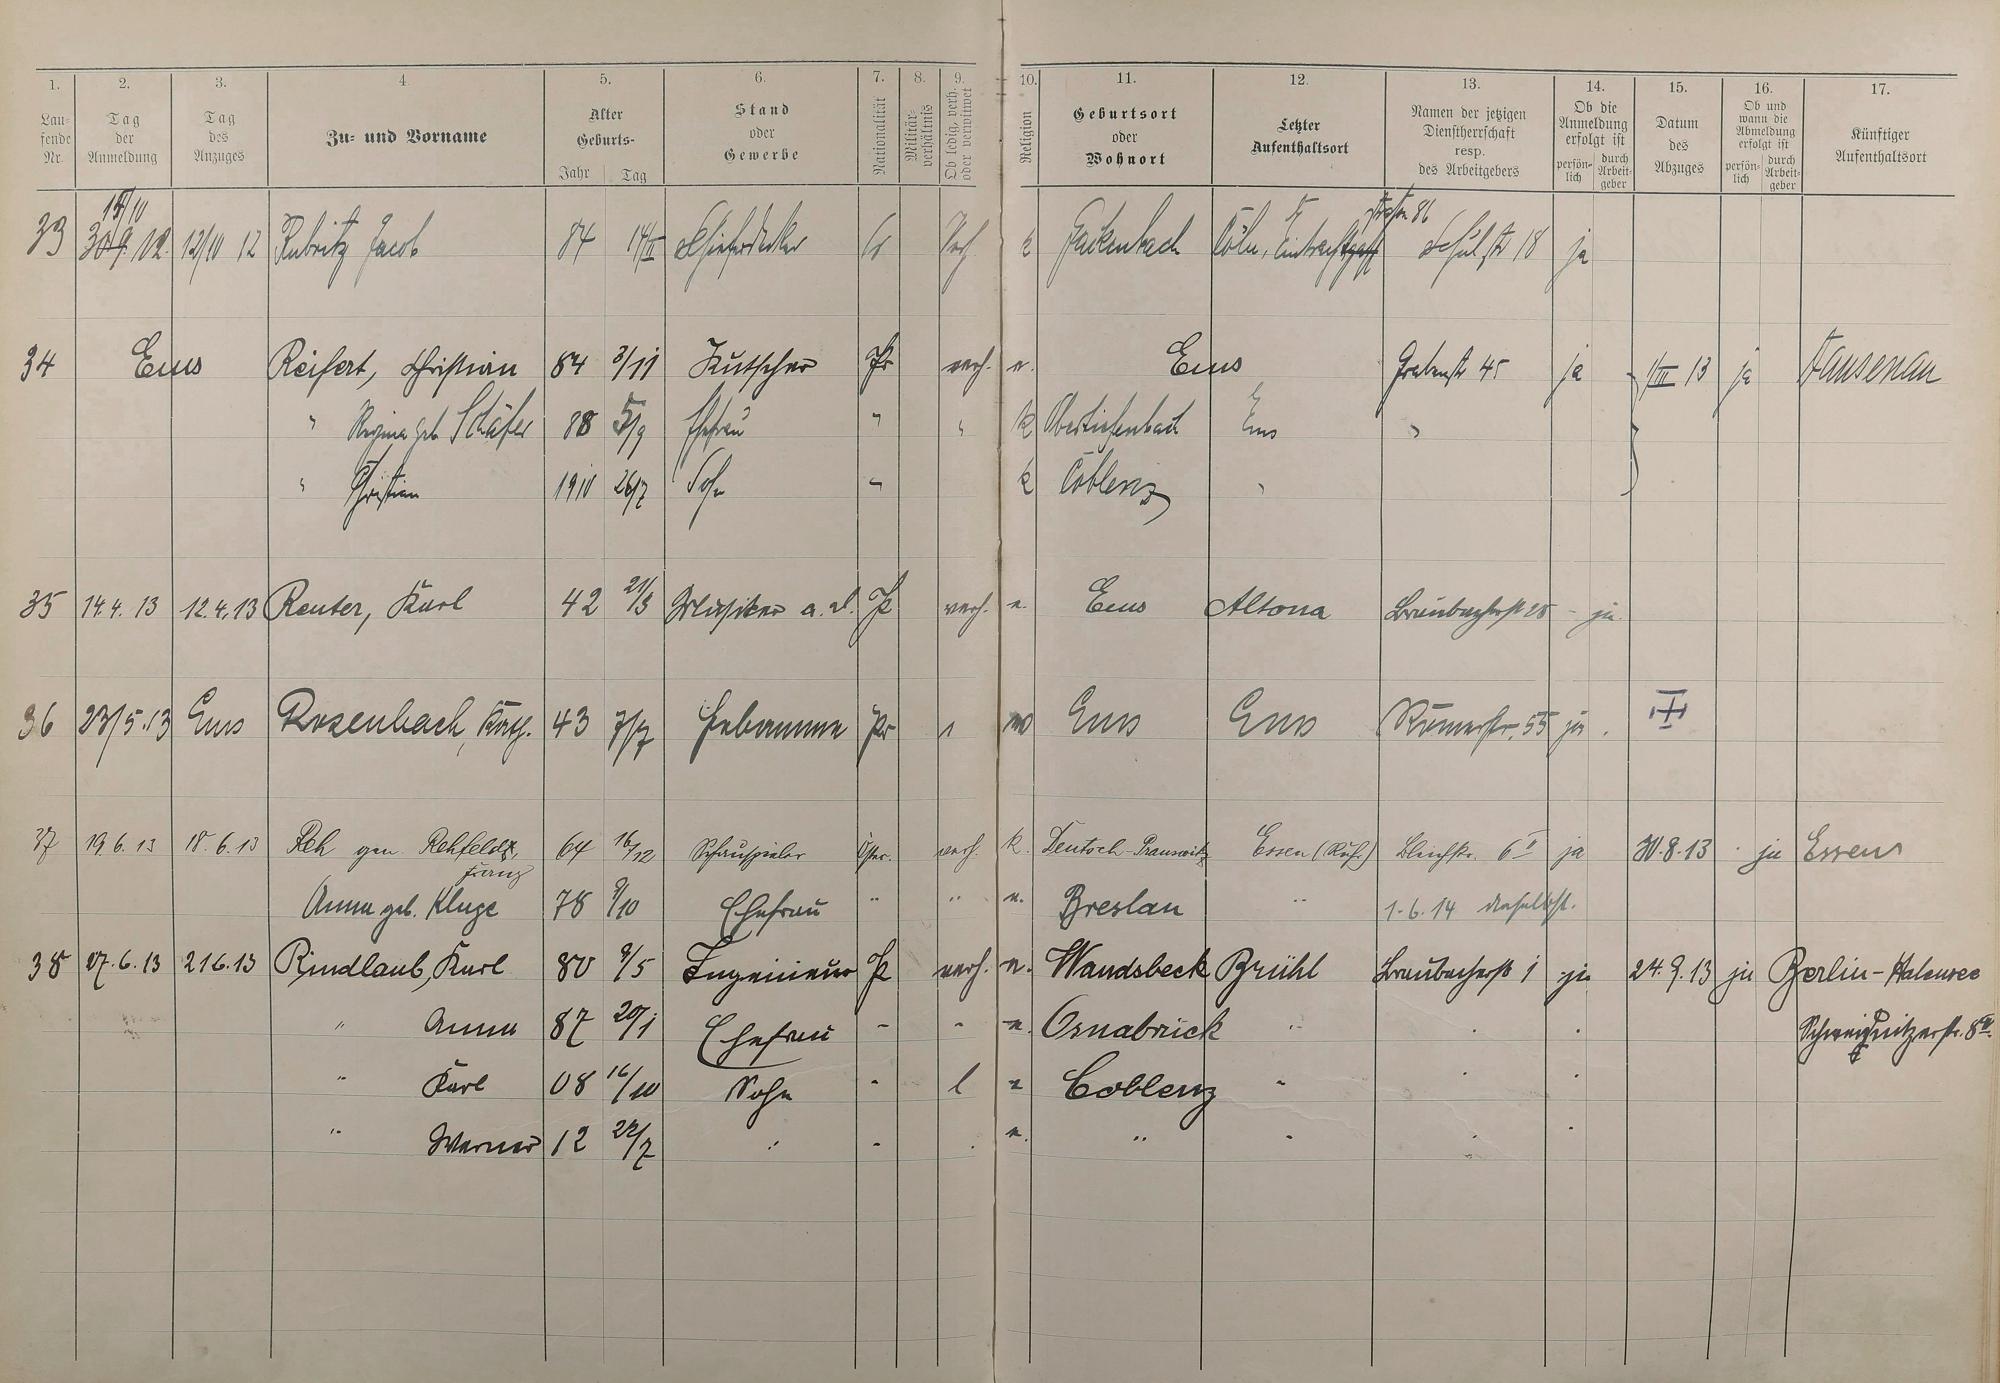 1. 2. 3. 4. 5. 6. 7. 8. 9. 10. 11. 12. 13. 14. 15. 16. 17.
Lau-
fende
Nr.
Tag
der
Anmeldung
Tag
des
Anzuges
Zu- und Vorname
Alter
Geburts-
Jahr Tag
Stand
oder
Gewerbe
Nationalität
Militär-
verhältnis
Ob ledig, verh.
oder verwitwet
Religion
Geburtsort
oder
Wohnort
Letzter
Aufenthaltsort
Namen der jetzigen
Dienstherrschaft
resp.
des Arbeitgebers
Ob die
Anmeldung
erfolgt ist
persön-
lich
durch
Arbeit-
geber
Datum
des
Abzuges
Ob und
wann die
Abmeldung
erfolgt ist
persön-
lich
durch
Arbeit-
geber
Künftiger
Aufenthaltsort
33 12/10 12 Jacob 84 k Cöln, Schulstr 18 ja
34 Ems Reifert, Christian 84 3/11 Kutscher Pr verh. e. Ems Grabenstr 45 ja 1/III 13 ja Dausenau
" Regina geb Schäfer 88 5/9 Ehefrau " " k Obertiefenbach Ems "
" Christian 1910 26/7 Sohn " k Coblenz "
35 14.4.13 12.4.13 Reuter, Karl 42 21/3 Musiker a. D. Pr verh. e. Ems Altona Braubacherstr 28 - ja
36 23/5.13 Ems Rosenbach, Kath. 43 7/7 Hebamme Pr Ems Ems Römerstr. 55 ja.
37 19.6.13 18.6.13 Reh gen Rehfeldt, 64 16/12 Schauspieler Öster. verh. k. Deutsch-Prausnitz Essen (Ruhr) Bleichstr. 6 II ja 30.8.13 ja Essen
Franz
Anna geb. Kluge 78 9/10 Ehefrau " " e. Breslau " 1.6.14 daselbst.
38 27.6.13 21 6.13 Rindlaub, Karl 80 9/5 Ingenieur Pr verh. e. Wandsbeck Brühl Braubacherstr 1 ja 24.9.13 ja Berlin-Halensee
" Anna 87 20/1 Ehefrau - " e. Osnabrück " Schweidnitzerstr. 8 IV.
" Karl 08 16/10 Sohn " l e Coblenz "
" Werner 12 22/7 " " e. " "